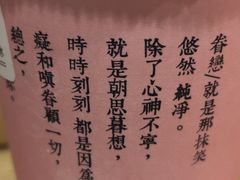 眷戀/就是那抹笑
悠然 純淨。
除了心神不寧，
就是朝思暮想，
時時刻刻 都是因為
癡和嗔眷顧一切，
總之，